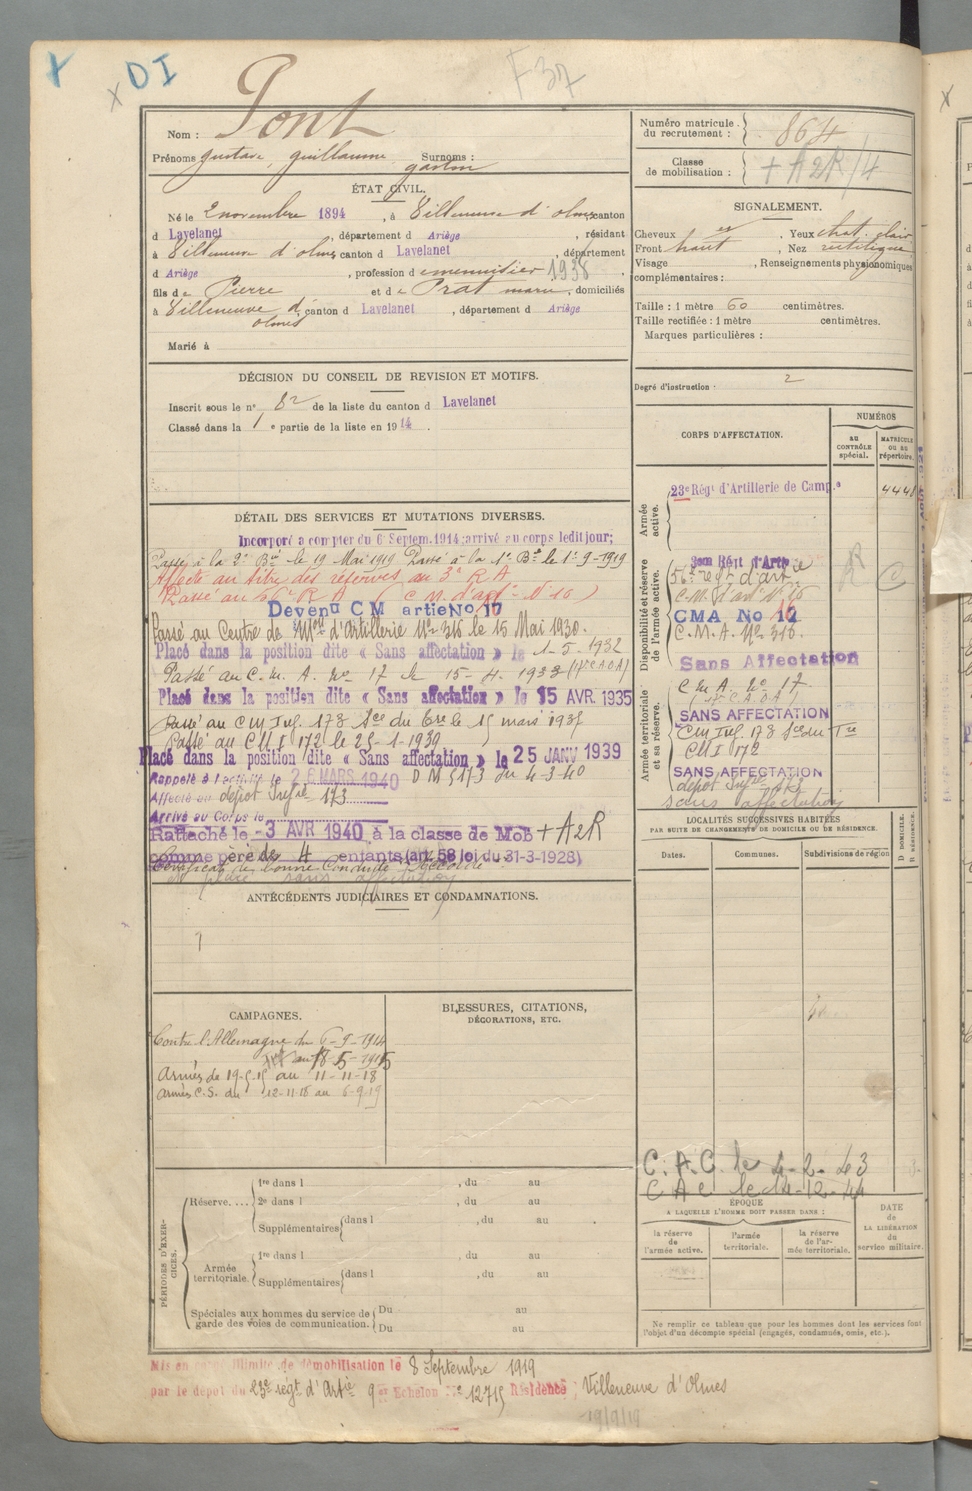 X DI
F 37
Nom : Pont
Prénoms gustave, guillaume, Surnoms : gaston
ÉTAT CIVIL.
Né le 2 novembre 1894, à Villeneuve d'olmes, canton
d Lavelanet, département d Ariège, résidant
à Villeneuve d'olmes canton d Lavelanet, département
d Ariège, profession d e menuisier 1938,
fils de Pierre et de Prat marie, domiciliés
à Villeneuve d'olmes, canton d Lavelanet, département d Ariège
Marié à
DÉCISION DU CONSEIL DE REVISION ET MOTIFS.
Inscrit sous le n° 82 de la liste du canton d Lavelanet
Classé dans la 1e partie de la liste en 1914.
DÉTAIL DES SERVICES ET MUTATIONS DIVERSES.
Incorporé a compter du 6 Septem. 1914; arrivé au corps ledit jour;
Passé à la 2e Bie le 19 Mai 1919 Passé à la 1e Bie le 1-9-1919
Affecté au titre des réserves au 3e R A
Passé au 56e R A (C M. d'art N° 16)
Devenu C M artie No 17
Passé au Centre de Mon d'Artillerie N° 316 le 15 Mai 1930.
Placé dans la position dite « Sans affectation » le 1-5-1932
Passé au C. M. A. No 17 le 15-4-1933 (17e C.A.O.A)
Placé dans la position dite « Sans affectation » le 15 AVR. 1935
Passé au CM Inf. 178 Sce du Tre le 15 mars 1937
Passé au CMI 172 le 25-1-1939
Placé dans la position dite « Sans affectation » le 25 JANV 1939
Rappelé à l'activité le 26 MARS 1940 D M 5173 du 4-3-40
Affecté au dépot Infie 173
Arrivé au Corps le
Rattaché le -3 AVR 1940 à la classe de Mob + A2R
comme père de 4 enfants (art. 58 loi du 31-3-1928)
Certificat de bonne Conduite "Accordé"
et placé sans affectation
ANTÉCÉDENTS JUDICIAIRES ET CONDAMNATIONS.
CAMPAGNES.
Contre l'Allemagne du 6-9-1914
au 18-5-1915
Armés de 19-5-15 au 11-11-18
Armés C.S. du 12-11-18 au 6-9-19
BLESSURES, CITATIONS,
DÉCORATIONS, ETC.
PÉRIODES D'EXERCICES.
Réserve.... 1re dans l , du au
2e dans l , du au
Supplémentaires dans l , du au
Armée territoriale. 1re dans l , du au
Supplémentaires dans l , du au
Spéciales aux hommes du service de garde des voies de communication. Du au
Du au
Mis en congé illimité de démobilisation le 8 Septembre 1919
par le dépot du 23e régt d'Artie 9er Echelon N° 12715 Résidence ; Villeneuve d'Olmes
19/9/19
Numéro matricule du recrutement : 864
Classe de mobilisation : + A2R/4
SIGNALEMENT.
Cheveux , Yeux chat. clair
Front haut, Nez rectiligne
Visage , Renseignements physionomiques
complémentaires :
Taille : 1 mètre 60 centimètres.
Taille rectifiée : 1 mètre centimètres.
Marques particulières :
Degré d'instruction : 2
CORPS D'AFFECTATION.
NUMÉROS
AU CONTRÔLE spécial.
MATRICULE OU AU répertoire.
Armée active.
23e Régt d'Artillerie de Campe 4448
Disponibilité et réserve de l'armée active.
3em Régt d'Artie
56e regt d'artie
C.M. d'art N° 16
CMA No 17
C.M.A. N° 316.
Sans Affectation
Armée territoriale et sa réserve.
C M A. No 17
(17e C.A.O.A)
SANS AFFECTATION
CM Inf 178 Sce du Tre
CMI 172
SANS AFFECTATION
dépot Infie 173
sans affectation
LOCALITÉS SUCCESSIVES HABITÉES
PAR SUITE DE CHANGEMENTS DE DOMICILE OU DE RÉSIDENCE.
Dates. Communes. Subdivisions de région
D DOMICILE. R RÉSIDENCE.
C. A. C. le 4-2-43
C A C le 14-12-44
ÉPOQUE
A LAQUELLE L'HOMME DOIT PASSER DANS :
DATE de LA LIBÉRATION du service militaire.
la réserve de l'armée active.
l'armée territoriale.
la réserve de l'armée territoriale.
Ne remplir ce tableau que pour les hommes dont les services font
l'objet d'un décompte spécial (engagés, condamnés, omis, etc.).